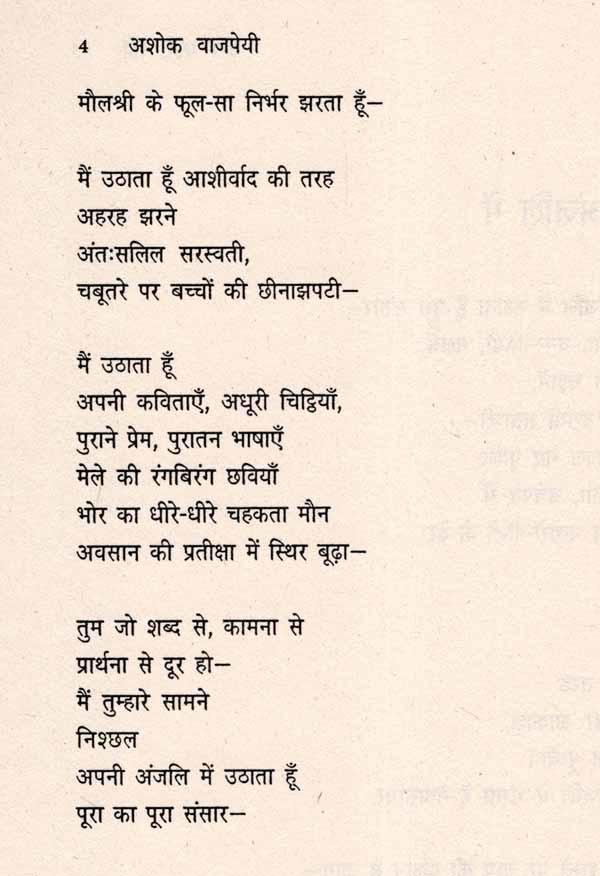 4 अशोक वाजपेयी
मौलश्री के फूल-सा निर्भर झरता हूँ—
मैं उठाता हूँ आशीर्वाद की तरह
अहरह झरने
अंतःसलिल सरस्वती,
चबूतरे पर बच्चों की छीनाझपटी—
मैं उठाता हूँ
अपनी कविताएँ, अधूरी चिट्ठियाँ,
पुराने प्रेम, पुरातन भाषाएँ
मेले की रंगबिरंग छवियाँ
भोर का धीरे-धीरे चहकता मौन
अवसान की प्रतीक्षा में स्थिर बूढ़ा—
तुम जो शब्द से, कामना से
प्रार्थना से दूर हो—
मैं तुम्हारे सामने
निश्छल
अपनी अंजलि में उठाता हूँ
पूरा का पूरा संसार—